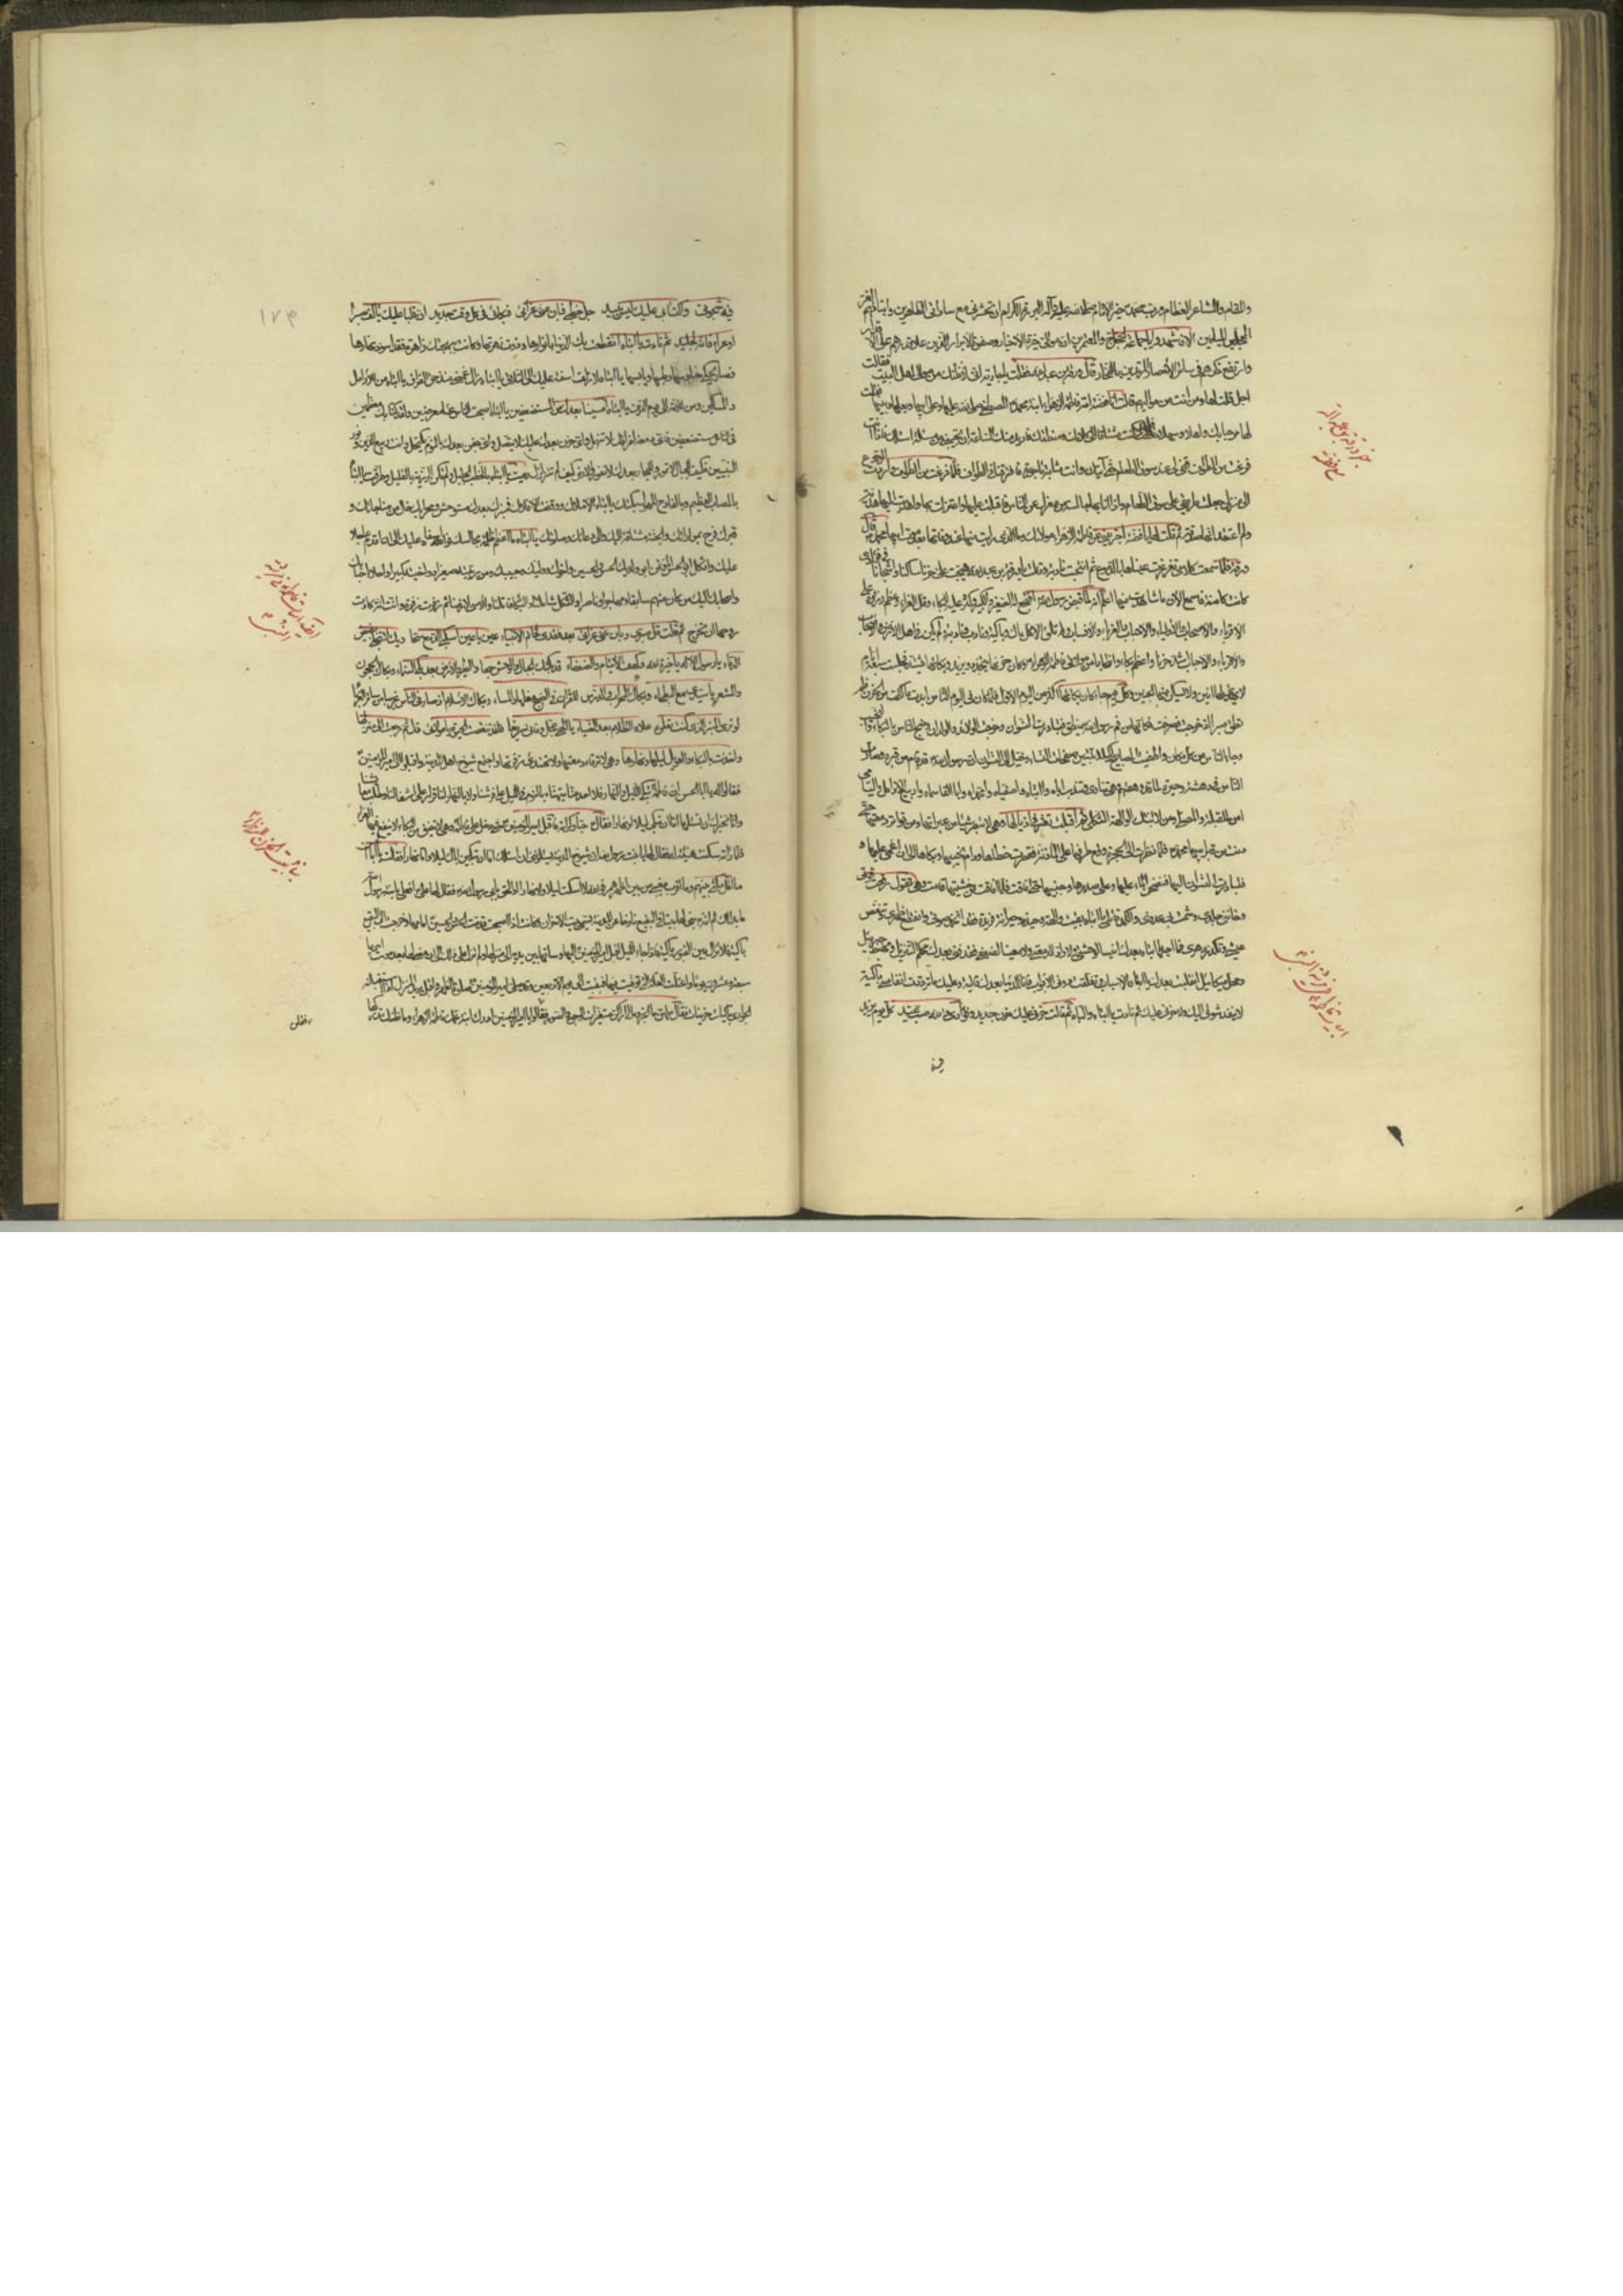 والمقام والمشاعر العظام ورب محمد خير الانام صلى الله عليه وآله البررة الكرام ان تحشرني مع ساداتي الطاهرين وابنائهم الغر
المحجلين الميامين الا فاشهدوا يا جماعة الحجاج والمعتمرين ان موالي خيرة الاخيار وصفوة الابرار الذين علا قدرهم على الاقدار
وارتفع ذكرهم في سائر الامصار المرتدين بالفخار قال ورقة بن عبد الله فقلت يا جارية اني لاظنك من موالي اهل البيت فقالت
اجل قلت لها ومن انت من مواليهم قالت انا فضة امة فاطمة الزهراء ابنة محمد المصطفى صلى الله عليها وعلى ابيها وبعلها وبنيها فقلت
لها مرحبا بك واهلا وسهلا فلقد كنت مشتاقا الى كلامك ومنطقك فاريد منك الساعة ان تجيبيني من مسئلة اسالك فاذا انت
فرغت من الطواف قفي لي عند سوق الطعام حتى آتيك وانت مثابة ماجورة فافترقنا في الطواف فلما فرغت من الطواف واردت الرجوع
الى منزلي جعلت طريقي على سوق الطعام واذا انا بها جالسة في معزل عن الناس فاقبلت عليها واعتزلت بها واهديت اليها هدية
ولم اعتقد انها صدقة ثم قلت لها يا فضة اخبريني عن مولاتك فاطمة الزهراء وما الذي رايت منها عند وفاتها بعد موت ابيها محمد قال
ورقة فلما سمعت كلامي تغرغرت عيناها بالدموع ثم انتحبت نادبة وقالت يا ورقة بن عبد الله هيجت علي حزنا ساكنا واشجانا في فؤادي
كانت كامنة فاسمع الان ما شاهدت منها اعلم انه لما قبض رسول الله افتجع له الصغير والكبير وكثر عليه البكاء وقل العزاء وعظم رزؤه على
الاقرباء والاصحاب والاولياء والاحباب والغرباء والانساب ولم تلق الا كل باك وباكية ونادب ونادبة ولم يكن في اهل الارض والاصحاب
والاقرباء والاحباب اشد حزنا واعظم بكاء وانتحابا من مولاتي فاطمة الزهراء وكان حزنها يتجدد ويزيد وبكاؤها يشتد فجلست سبعة ايام
لا يهدا لها انين ولا يسكن منها الحنين وكل يوم جاء كان بكاؤها اكثر من اليوم الاول فلما كان في اليوم الثامن ابدت ما كتمت من الحزن فلم
تطق صبرا اذ خرجت وصرخت فكانها من فم رسول الله تنطق فتبادرت النسوان وخرجت الولائد والولدان وضج الناس بالبكاء والنحيب
وجاء الناس من كل مكان واطفئت المصابيح لكيلا تتبين صفحات النساء وخيل الى النسوان ان رسول الله قد قام من قبره وصارت
الناس في دهشة وحيرة لما قد رهقهم وهي تنادي وتندب اباه وا ابتاه وا صفياه وا محمداه وا ابا القاسماه وا ربيع الارامل واليتامى
من للقبلة والمصلى ومن لابنتك الوالهة الثكلى ثم اقبلت تعثر في اذيالها وهي لا تبصر شيئا من عبرتها ومن تواتر دمعتها حتى
دنت من قبر ابيها محمد فلما نظرت الى الحجرة وقع طرفها على الماذنة فقصرت خطاها ودام نحيبها وبكاها الى ان اغمي عليها
فتبادرت النسوان اليها فنضحن الماء عليها وعلى صدرها وجبينها حتى افاقت فلما افاقت من غشيتها قامت وهي تقول رفعت قوتي
وخانني جلدي وشمت بي عدوي والكمد قاتلي يا ابتاه بقيت والهة وحيدة وحيرانة فريدة فقد انخمد صوتي وانقطع ظهري وتنغص
عيشي وتكدر دهري فما اجد يا ابتاه بعدك انيسا لوحشتي ولا رادا لدمعتي ولا معينا لضعفي فقد فني بعدك محكم التنزيل ومهبط جبرئيل
ومحل ميكائيل انقلبت بعدك يا ابتاه الاسباب وتغلقت دوني الابواب فانا للدنيا بعدك قالية وعليك ما ترددت انفاسي باكية
لا ينفد شوقي اليك ولا حزني عليك ثم نادت يا ابتاه والباه ثم قالت ان حزني عليك حزن جديد وفؤادي والله صب عنيد كل يوم يزيد
فيه
١٧٣
فيه شجوني واكتيابي عليك ليس يبيد جل خطبي فبان عني عزائي فبكائي في كل وقت جديد ان قلبا عليك يالف صبرا
او عزاء فانه لجليد ثم نادت يا ابتاه انقطعت بك الدنيا بانوارها وزوت زهرتها وكانت ببهجتك زاهرة فقد اسود نهارها
فصار يحكي حنادسها رطبها ويابسها يا ابتاه لا زلت آسفة عليك الى التلاق يا ابتاه زال غمضي منذ حق الفراق يا ابتاه من للارامل
والمساكين ومن للامة الى يوم الدين يا ابتاه امسينا بعدك من المستضعفين يا ابتاه اصبحت الناس عنا معرضين ولقد كنا بك معظمين
في الناس غير مستضعفين فاي دمعة لفراقك لا تنهمل واي حزن بعدك عليك لا يتصل واي جفن بعدك بالنوم يكتحل وانت ربيع الدين ونور
النبيين فكيف للجبال لا تمور وللبحار بعدك لا تغور والارض كيف لم تتزلزل رميت يا ابتاه بالخطب الجليل ولم تكن الرزية بالقليل وطرقت يا ابتاه
بالمصاب العظيم وبالفادح المهول بكتك يا ابتاه الاملاك ووقفت الافلاك فمنبرك بعدك مستوحش ومحرابك خال من مناجاتك و
قبرك فرح بمواراتك والجنة مشتاقة اليك والى دعائك وصلوتك يا ابتاه ما اعظم ظلمة مجالسك فوا اسفاه عليك الى ان اقدم عاجلا
عليك واثكل ابو الحسن المؤتمن ابو ولديك الحسن والحسين واخوك ووليك وحبيبك ومن ربيته صغيرا وواخيته كبيرا واحلى احبابك
واصحابك اليك من كان منهم سابقا ومهاجرا وناصرا والثكل شاملنا والبكاء قاتلنا والاسى لازمنا ثم زفرت زفرة وانت انة كادت
روحها ان تخرج ثم قالت قل صبري وبان عني عزائي بعد فقدي لخاتم الانبياء عين يا عين اسكبي الدمع سحا ويك لا تبخلي بفيض
الدماء يا رسول الاله يا خيرة الله وكهف الايتام والضعفاء قد بكتك الجبال والوحش جمعا والطير والارض بعد بكي السماء وبكاك الحجون
والمشعر يا سيدي مع البطحاء وبكاك المحراب والدرس للقران في الصبح معلنا والمساء وبكاك الاسلام اذ صار في الناس غريبا من سائر الغرباء
لو ترى المنبر الذي كنت تعلوه علاه الظلام بعد الضياء يا الهي عجل وفاتي سريعا فلقد تنغصت الحيوة يا مولائي قال ثم رجعت الى منزلها
واخذت بالبكاء والعويل ليلها ونهارها وهي لا ترقا دمعتها ولا تهدا زفرتها واجتمع شيوخ اهل المدينة واقبلوا الى امير المؤمنين
فقالوا له يا ابا الحسن ان فاطمة تبكي الليل والنهار فلا احد منا يتهنا بالنوم في الليل على فرشنا ولا بالنهار لنا قرار على اشغالنا وطلب معايشنا
وانا نخبرك ان تسئلها اما ان تبكي ليلا او نهارا فقال حبا وكرامة فاقبل امير المؤمنين حتى دخل على فاطمة وهي لا تفيق من البكاء ولا ينفع فيها العزاء
فلما راته سكنت هنيئة له فقال لها يا بنت رسول الله ان شيوخ المدينة يسالوني ان اسالك اما ان تبكين اباك ليلا واما نهارا فقالت يا ابا الحسن
ما اقل مكثي بينهم وما اقرب مغيبي من بين اظهرهم فوالله لا اسكت ليلا ولا نهارا او الحق بابي رسول الله فقال لها علي افعلي يا بنت رسول الله
ما بدا لك ثم انه بنى لها بيتا في البقيع نازحا عن المدينة يسمى بيت الاحزان وكانت اذا اصبحت قدمت الحسن والحسين امامها وخرجت الى البقيع
باكية فلا تزال بين القبور باكية فاذا جاء الليل اقبل امير المؤمنين اليها وساقها بين يديه الى منزلها ولم تزل على ذلك الى ان مضى لها بعد موت ابيها
سبعة وعشرون يوما واعتلت العلة التي توفيت فيها فبقيت الى يوم الاربعين وقد صلى امير المؤمنين صلوة الظهر واقبل يريد المنزل اذا استقبلته
الجواري باكيات حزينات فقال لهن ما الخبر وما لي اراكن متغيرات الوجوه والصور فقلن يا امير المؤمنين ادرك ابنة عمك فاطمة الزهراء وما نظنك تدركها